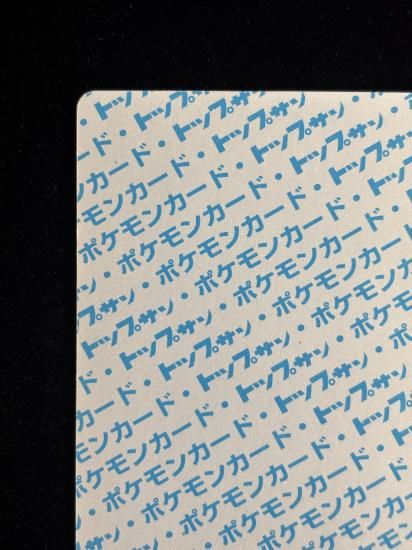 トップ
ード・トップサン
カード・トップサン・
ンカード・トップサン・
ケモンカード・トップサン・
ポケモンカード・トップサン・
ン・ポケモンカード・トップサン
プサン・ポケモンカード・トップ
トップサン・ポケモンカード・
・トップサン・ポケモンカード
ド・トップサン・ポケモンカ
カード・トップサン・ポケモ
ンカード・トップサン・ポ
ケモンカード・トップサン
ポケモンカード・トップ
・ポケモンカード・
サン・ポケモンカード